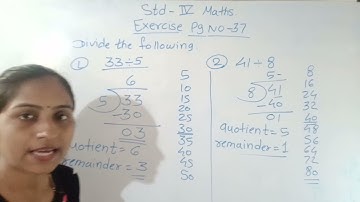 Std - IV Maths
Exercise Pg No-37
Divide the following
① 33÷5
6
5 33
-30
03
quotient = 6
remainder = 3
5
10
15
20
25
30
35
40
45
50
② 41÷8
5
8 41
-40
01
quotient = 5
remainder = 1
8
16
24
32
40
48
56
64
72
80